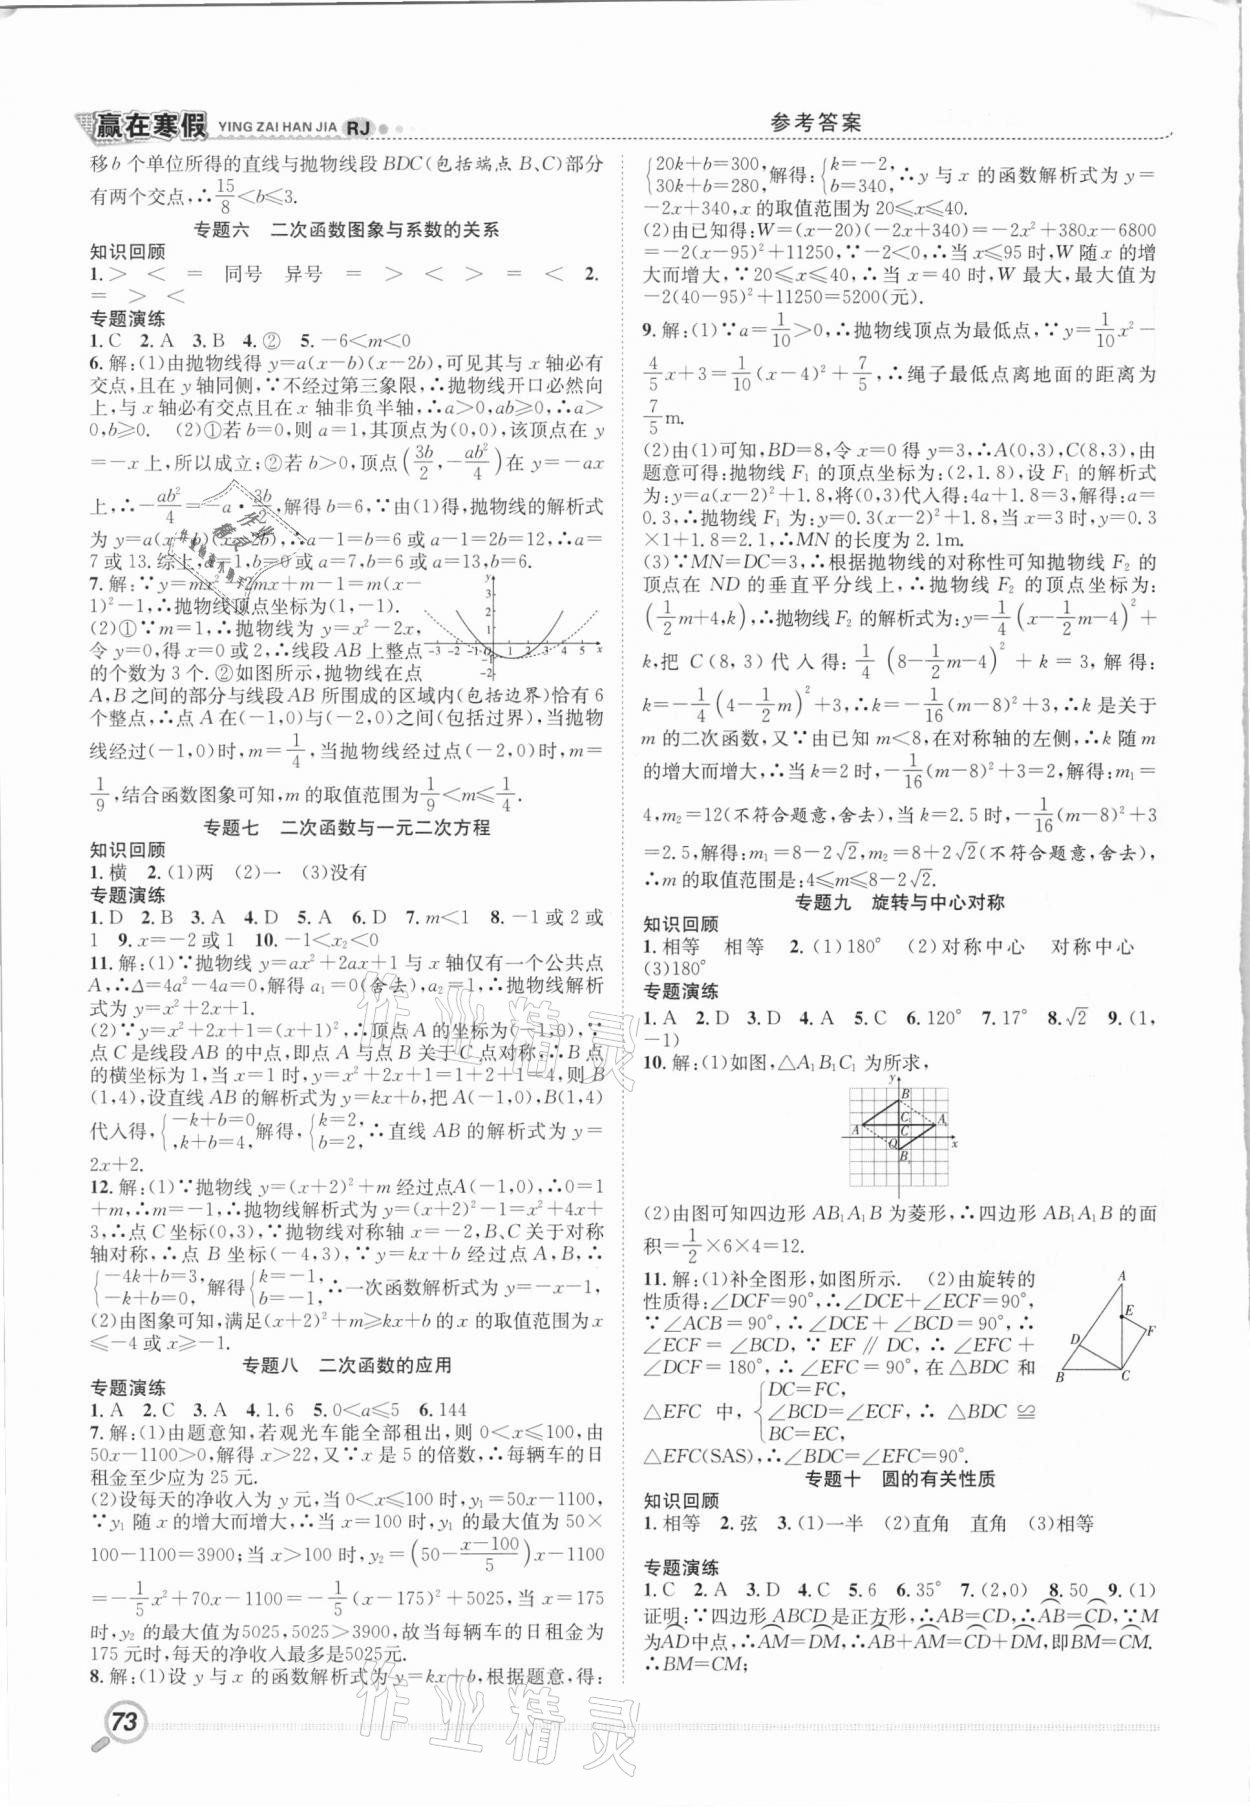 赢在寒假 YING ZAI HAN JIA RJ
参考答案
移b个单位所得的直线与抛物线段BDC(包括端点B、C)部分
有两个交点,∴15/8<b≤3.
专题六 二次函数图象与系数的关系
知识回顾
1.> < = 同号 异号 = > < > = < 2.
= > <
专题演练
1.C 2.A 3.B 4.② 5.-6<m<0
6.解:(1)由抛物线得y=a(x-b)(x-2b),可见其与x轴必有
交点,且在y轴同侧,∵不经过第三象限,∴抛物线开口必然向
上,与x轴必有交点且在x轴非负半轴,∴a>0,ab≥0,∴a>
0,b≥0. (2)①若b=0,则a=1,其顶点为(0,0),该顶点在y
=-x上,所以成立;②若b>0,顶点(3b/2,-ab²/4)在y=-ax
上,∴-ab²/4=-a·3b/2,解得b=6,∵由(1)得,抛物线的解析式
为y=a(x-b)(x-2b),∴a-1=b=6或a-1=2b=12,∴a=
7或13.综上,a=1,b=0或a=7,b=6或a=13,b=6.
7.解:∵y=mx²-2mx+m-1=m(x-
1)²-1,∴抛物线顶点坐标为(1,-1).
(2)①∵m=1,∴抛物线为y=x²-2x,
令y=0,得x=0或2,∴线段AB上整点
的个数为3个.②如图所示,抛物线在点
A,B之间的部分与线段AB所围成的区域内(包括边界)恰有6
个整点,∴点A在(-1,0)与(-2,0)之间(包括过界),当抛物
线经过(-1,0)时,m=1/4,当抛物线经过点(-2,0)时,m=
1/9,结合函数图象可知,m的取值范围为1/9<m≤1/4.
专题七 二次函数与一元二次方程
知识回顾
1.横 2.(1)两 (2)一 (3)没有
专题演练
1.D 2.B 3.A 4.D 5.A 6.D 7.m<1 8.-1或2或
1 9.x=-2或1 10.-1<x₂<0
11.解:(1)∵抛物线y=ax²+2ax+1与x轴仅有一个公共点
A,∴Δ=4a²-4a=0,解得a₁=0(舍去),a₂=1,∴抛物线解析
式为y=x²+2x+1.
(2)∵y=x²+2x+1=(x+1)²,∴顶点A的坐标为(-1,0),∵
点C是线段AB的中点,即点A与点B关于C点对称,∴B点
的横坐标为1,当x=1时,y=x²+2x+1=1+2+1=4,则B
(1,4),设直线AB的解析式为y=kx+b,把A(-1,0),B(1,4)
代入得,{-k+b=0 ,k+b=4, 解得,{k=2, b=2, ∴直线AB的解析式为y=
2x+2.
12.解:(1)∵抛物线y=(x+2)²+m经过点A(-1,0),∴0=1
+m,∴m=-1,∴抛物线解析式为y=(x+2)²-1=x²+4x+
3,∴点C坐标(0,3),∵抛物线对称轴x=-2,B、C关于对称
轴对称,∴点B坐标(-4,3),∵y=kx+b经过点A、B,∴
{-4k+b=3, -k+b=0, 解得{k=-1, b=-1, ∴一次函数解析式为y=-x-1,
(2)由图象可知,满足(x+2)²+m≥kx+b的取值范围为x
≤-4或x≥-1.
专题八 二次函数的应用
专题演练
1.A 2.C 3.A 4.1.6 5.0<a≤5 6.144
7.解:(1)由题意知,若观光车能全部租出,则0<x≤100,由
50x-1100>0,解得x>22,又∵x是5的倍数,∴每辆车的日
租金至少应为25元.
(2)设每天的净收入为y元,当0<x≤100时,y₁=50x-1100,
∵y₁随x的增大而增大,∴当x=100时,y₁的最大值为50×
100-1100=3900;当x>100时,y₂=(50-(x-100)/5)x-1100
=-1/5x²+70x-1100=-1/5(x-175)²+5025,当x=175
时,y₂的最大值为5025,5025>3900,故当每辆车的日租金为
175元时,每天的净收入最多是5025元.
8.解:(1)设y与x的函数解析式为y=kx+b,根据题意,得:
{20k+b=300, 30k+b=280, 解得:{k=-2, b=340, ∴y与x的函数解析式为y=
-2x+340,x的取值范围为20≤x≤40.
(2)由已知得:W=(x-20)(-2x+340)=-2x²+380x-6800
=-2(x-95)²+11250,∵-2<0,∴当x≤95时,W随x的增
大而增大,∵20≤x≤40,∴当x=40时,W最大,最大值为
-2(40-95)²+11250=5200(元).
9.解:(1)∵a=1/10>0,∴抛物线顶点为最低点,∵y=1/10x²-
4/5x+3=1/10(x-4)²+7/5,∴绳子最低点离地面的距离为
7/5m.
(2)由(1)可知,BD=8,令x=0得y=3,∴A(0,3),C(8,3),由
题意可得:抛物线F₁的顶点坐标为:(2,1.8),设F₁的解析式
为:y=a(x-2)²+1.8,将(0,3)代入得:4a+1.8=3,解得:a=
0.3,∴抛物线F₁为:y=0.3(x-2)²+1.8,当x=3时,y=0.3
×1+1.8=2.1,∴MN的长度为2.1m.
(3)∵MN=DC=3,∴根据抛物线的对称性可知抛物线F₂的
顶点在ND的垂直平分线上,∴抛物线F₂的顶点坐标为:
(1/2m+4,k),∴抛物线F₂的解析式为:y=1/4(x-1/2m-4)²+
k,把C(8,3)代入得:1/4(8-1/2m-4)²+k=3,解得:
k=-1/4(4-1/2m)²+3,∴k=-1/16(m-8)²+3,∴k是关于
m的二次函数,又∵由已知m<8,在对称轴的左侧,∴k随m
的增大而增大,∴当k=2时,-1/16(m-8)²+3=2,解得:m₁=
4,m₂=12(不符合题意,舍去),当k=2.5时,-1/16(m-8)²+3
=2.5,解得:m₁=8-2√2,m₂=8+2√2(不符合题意,舍去),
∴m的取值范围是:4≤m≤8-2√2.
专题九 旋转与中心对称
知识回顾
1.相等 相等 2.(1)180° (2)对称中心 对称中心
(3)180°
专题演练
1.A 2.D 3.D 4.A 5.C 6.120° 7.17° 8.√2 9.(1,
-1)
10.解:(1)如图,△A₁B₁C₁为所求,
(2)由图可知四边形AB₁A₁B为菱形,∴四边形AB₁A₁B的面
积=1/2×6×4=12.
11.解:(1)补全图形,如图所示. (2)由旋转的
性质得:∠DCF=90°,∴∠DCE+∠ECF=90°,
∵∠ACB=90°,∴∠DCE+∠BCD=90°,∴
∠ECF=∠BCD,∵EF∥DC,∴∠EFC+
∠DCF=180°,∴∠EFC=90°,在△BDC和
△EFC中,{DC=FC, ∠BCD=∠ECF, BC=EC, ∴△BDC≌
△EFC(SAS),∴∠BDC=∠EFC=90°.
专题十 圆的有关性质
知识回顾
1.相等 2.弦 3.(1)一半 (2)直角 直角 (3)相等
专题演练
1.C 2.A 3.D 4.C 5.6 6.35° 7.(2,0) 8.50 9.(1)
证明:∵四边形ABCD是正方形,∴AB=CD,∴AB=CD,∵M
为AD中点,∴AM=DM,∴AB+AM=CD+DM,即BM=CM.
∴BM=CM;
73
作业精灵
作业精灵